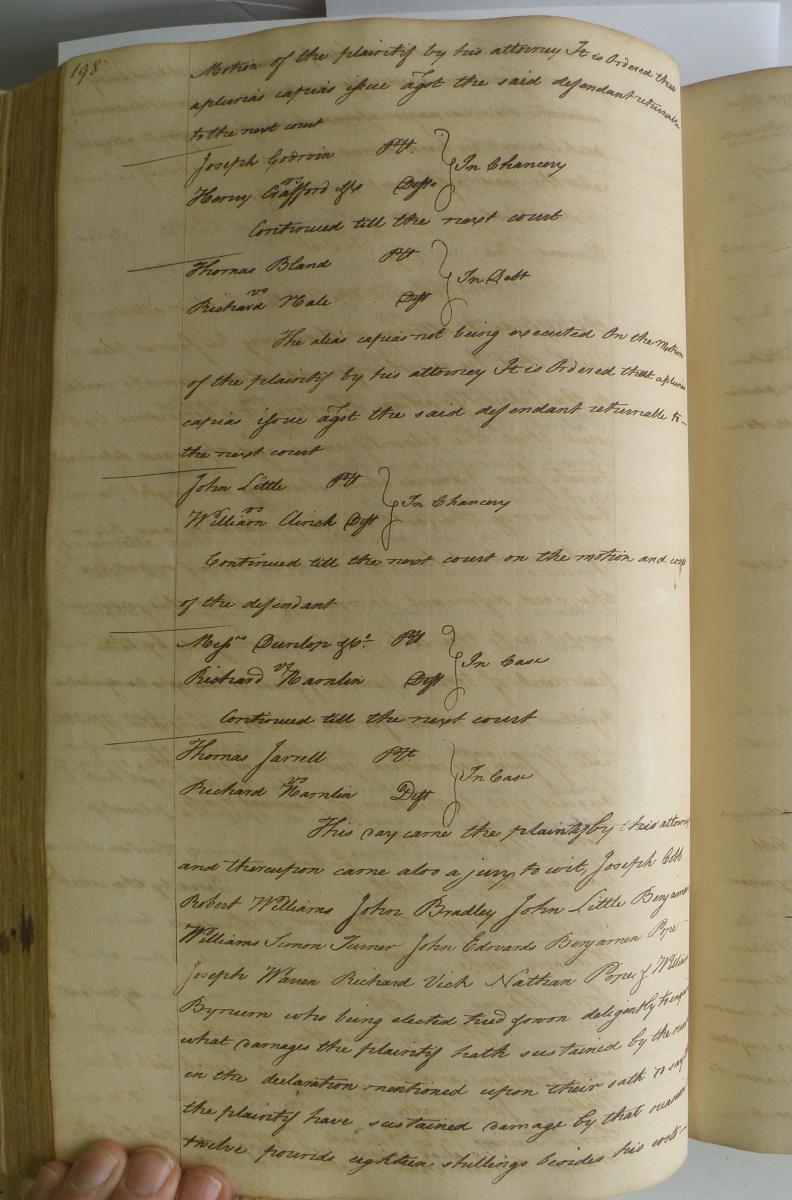 198
Motion of the plaintif by his attorney It is Ordered that
a plurias capias issue agst the said defendant returnable
to the next court
Joseph Godwin Plt.
vs } In Chancery
Henry Crafford &c Defts
Continued till the next court
Thomas Bland Plt
vs } In Debt
Richard Hale Deft
The alias capias not being executed On the Motion
of the plaintif by his attorney It is Ordered that a plurias
capias issue agst the said defendant returnable to
the next court
John Little Plt
vs } In Chancery
William Urick Deft
Continued till the next court on the motion and costs
of the defendant
Messrs Dunlop & Co. Plt
vs } In Case
Richard Hamlin Deft
Continued till the next court
Thomas Jarrell Plt
vs } In Case
Richard Hamlin Deft
This day came the plaintif by his attorney
and thereupon came also a jury, to wit, Joseph Cobb
Robert Williams John Bradley John Little Benjamen
Williams Simon Turner John Edwards Benjamen Pope
Joseph Warren Richard Vick Nathan Pope & William
Byrum who being elected tried sworn deligently to enquire
what damages the plaintif hath sustained by the
in the declaration mentioned upon their oath do say
the plaintif have sustained damage by that reason
twelve pounds eighteen shillings besides his costs